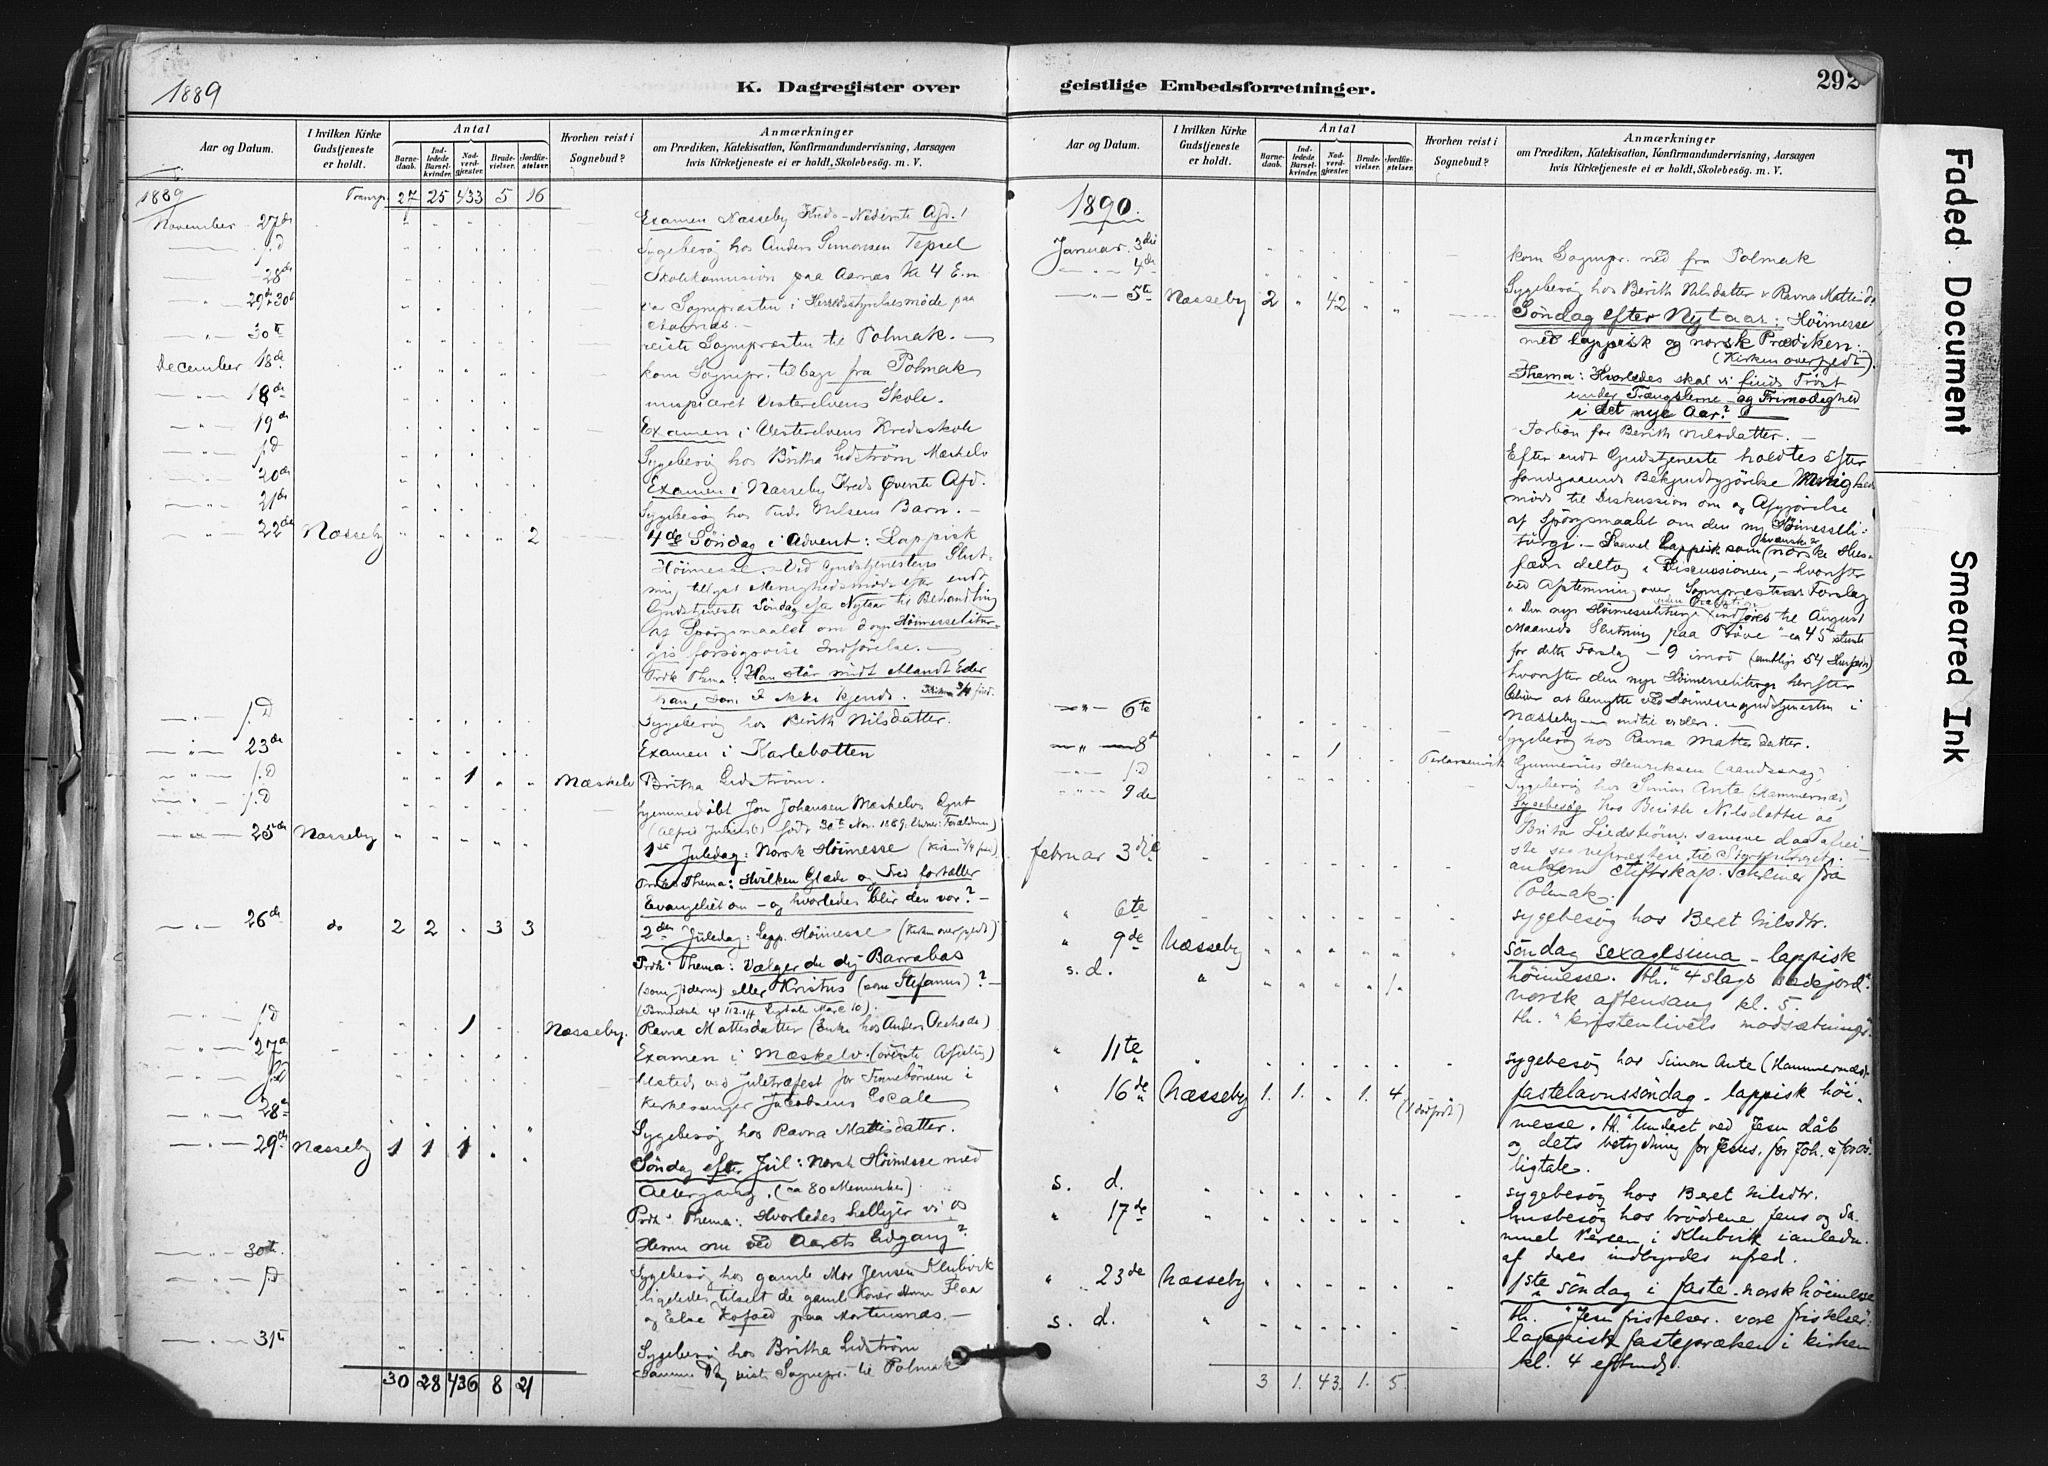 1889
K. Dagregister over
geistlige Embedsforretninger.
292
Aar og Datum.
I hvilken Kirke Gudstjeneste er holdt.
Antal
Barnedaab.
Indledede Barselkvinder.
Nadverdgjæster.
Brudevielser.
Jordfæstelser.
Hvorhen reist i Sognebud?
Anmærkninger
om Prædiken, Katekisation, Konfirmandundervisning, Aarsagen
hvis Kirketjeneste ei er holdt, Skolebesög. m. V.
1889 Transp. 27 25 433 5 16
November 27de Examen Næsseby Kreds - Nederste Afd.
s.D Sygebesög hos Anders Simonsen Tepsel
28de paa Aarnæs Kl 4 E.m
29de-30te var Sognepræsten i Herredsstyrelsesmöde paa
30te reiste Sognepræsten til Polmak. -
December 18de kom Sognepr. tilbage fra Polmak
18de Vesterelvens Skole.
19de Examen i Vesterelvens Kredsskole
s.D Sygebesög hos Britha Lidström Mæskelv
20de Examen i Næsseby Kreds Överste Afd.
21de Sygebesög hos Nilsens Barn. -
22de Næsseby 2 4de Söndag i Advent: Lappisk
Höimesse. - Ved Gudstjenestens Slut-
ning Menighedsmöde efter endt
Gudstjeneste Söndag efter Nytaar til Behandling
af Spörgsmaalet om d nye Höimesselitur-
gis forsögsvise Indförelse. -
Prdk Thema: Han står midt iblandt Eder
han, som I ikke kjende.
s.D Sygebesög hos Berith Nilsdatter.
23de Examen i Karlebotten
s.D 1 Mæskelv Britha Lidström.
s.D hjemmedöbt Jon Johansen Mæskelvs Gut
(Alfred Julius) födt 30te Nov. 1889.
25de Næsseby 1ste Juledag: Norsk Höimesse
Thema: Hvilken Glæde og Fred fortæller
Evangeliet om - og hvorledes blir den vor? -
26de do 2 2 3 3 2den Juledag: Lapp. Höimesse (Kirken overfyldt)
Prdk. Thema: Vælger du dig Barrabas
(som Jöderne) eller Kristus (som Stefanus)? -
s.D 1 Næsseby. Ravna Mattisdatter (Enke hos Anders)
27de Examen i Mæskelv. (överste Afdeling)
s.D tilstede ved Juletræfest for Finnebörnene i
Kirkesanger Jacobsens Locale
28de Sygebesög hos Ravna Mattisdatter.
29de Næsseby 1 1 1 Söndag efter Jul: Norsk Höimesse med
Altergang. (ca 80 Mennesker)
Prdk Thema: Hvorledes helliger vi os
Herren om ved Aarets Udgang?
30te Sygebesög hos gamle Mor Jensen Klubvik
s.D ligeledes tilset de gamle Koner
og Else Kofoed paa Mortensnæs. -
31te Sygebesög hos Britha Lidström
Samme Dag reiste Sognepr. til Polmak
30 28 436 8 21
Aar og Datum.
I hvilken Kirke Gudstjeneste er holdt.
Antal
Barnedaab.
Indledede Barselkvinder.
Nadverdgjæster.
Brudevielser.
Jordfæstelser.
Hvorhen reist i Sognebud?
Anmærkninger
om Prædiken, Katekisation, Konfirmandundervisning, Aarsagen
hvis Kirketjeneste ei er holdt, Skolebesög. m. V.
1890.
Januar 3die kom Sognepr. ned fra Polmak
4de Sygebesög hos Berith Nilsdatter & Ravna Mattisd.
5te Næsseby 2 42 Söndag efter Nytaar: Höimesse
med lappisk og norsk Prædiken.
(Kirken overfyldt).
Thema: Hvorledes skal vi finde Tröst
under Trængslerne og Frimodighed
i det nye Aar?
Forbön for Berith Nilsdatter. -
Efter endt Gudstjeneste holdtes efter
foregaaende Bekjendtgjörelse Menigheds
möde til Diskussion om og Afgjörelse
af Spörgsmaalet om den ny Höimesseli-
turgi. - Saavel Lappisk som kvænske norske Hus-
fædre deltog i Discussionen, - hvorefter
ved Afstemning over Sognepræstens Forslag
" Den nye Höimesseliturgi indföres til August
Maaneds Slutning paa Pröve " - ca 45 stemte
for dette Forslag - 9 imod
hvorefter den nye Höimesseliturgi herefter
bliver at benytte ved Höimessegudstjenesten i
Næsseby -
6te Sygebesög hos Ravna Mattisdatter.
8de 1 Gunnerius Henriksen (aandssvag)
s.D Sygebesög hos Simon Ante (Hammernæs)
9de Sygebesög hos Berith Nilsdatter og
Brita Lidström. samme dag afrei-
ste sognepræsten til Stortinget.
februar 3die ankom stiftskap. Schelmer fra
Polmak.
6te sygebesög hos Beret Nilsdtr.
9de Næsseby söndag sexagesima - lappisk
höimesse. th. " 4 slags sædejord "
s. d. 1 norsk aftensang kl. 5.
th. " kristenlivets modsætninger "
11te sygebesög hos Simon Ante (Hammernæs)
16de Næsseby 1. 1. 1. 4 fastelavnssöndag - lappisk höi-
messe. th. Underet ved Jesu dåb
og dets betydning for Jesus, for Joh. & for os.
ligtale.
s. d. sygebesög hos Beret Nilsdtr.
17de husbesög hos brödrene Jens og Sa-
muel Persen i Klubvik i anledn.
af deres indbyrdes ufred.
23de Næsseby 1ste söndag i faste - norsk höimesse
th. " Jesu fristelser. vore fristelser "
s. d. lappisk fasteprædken i kirken
kl. 4 eftmd.
3 1. 43. 1. 5.
Faded Document
Smeared Ink